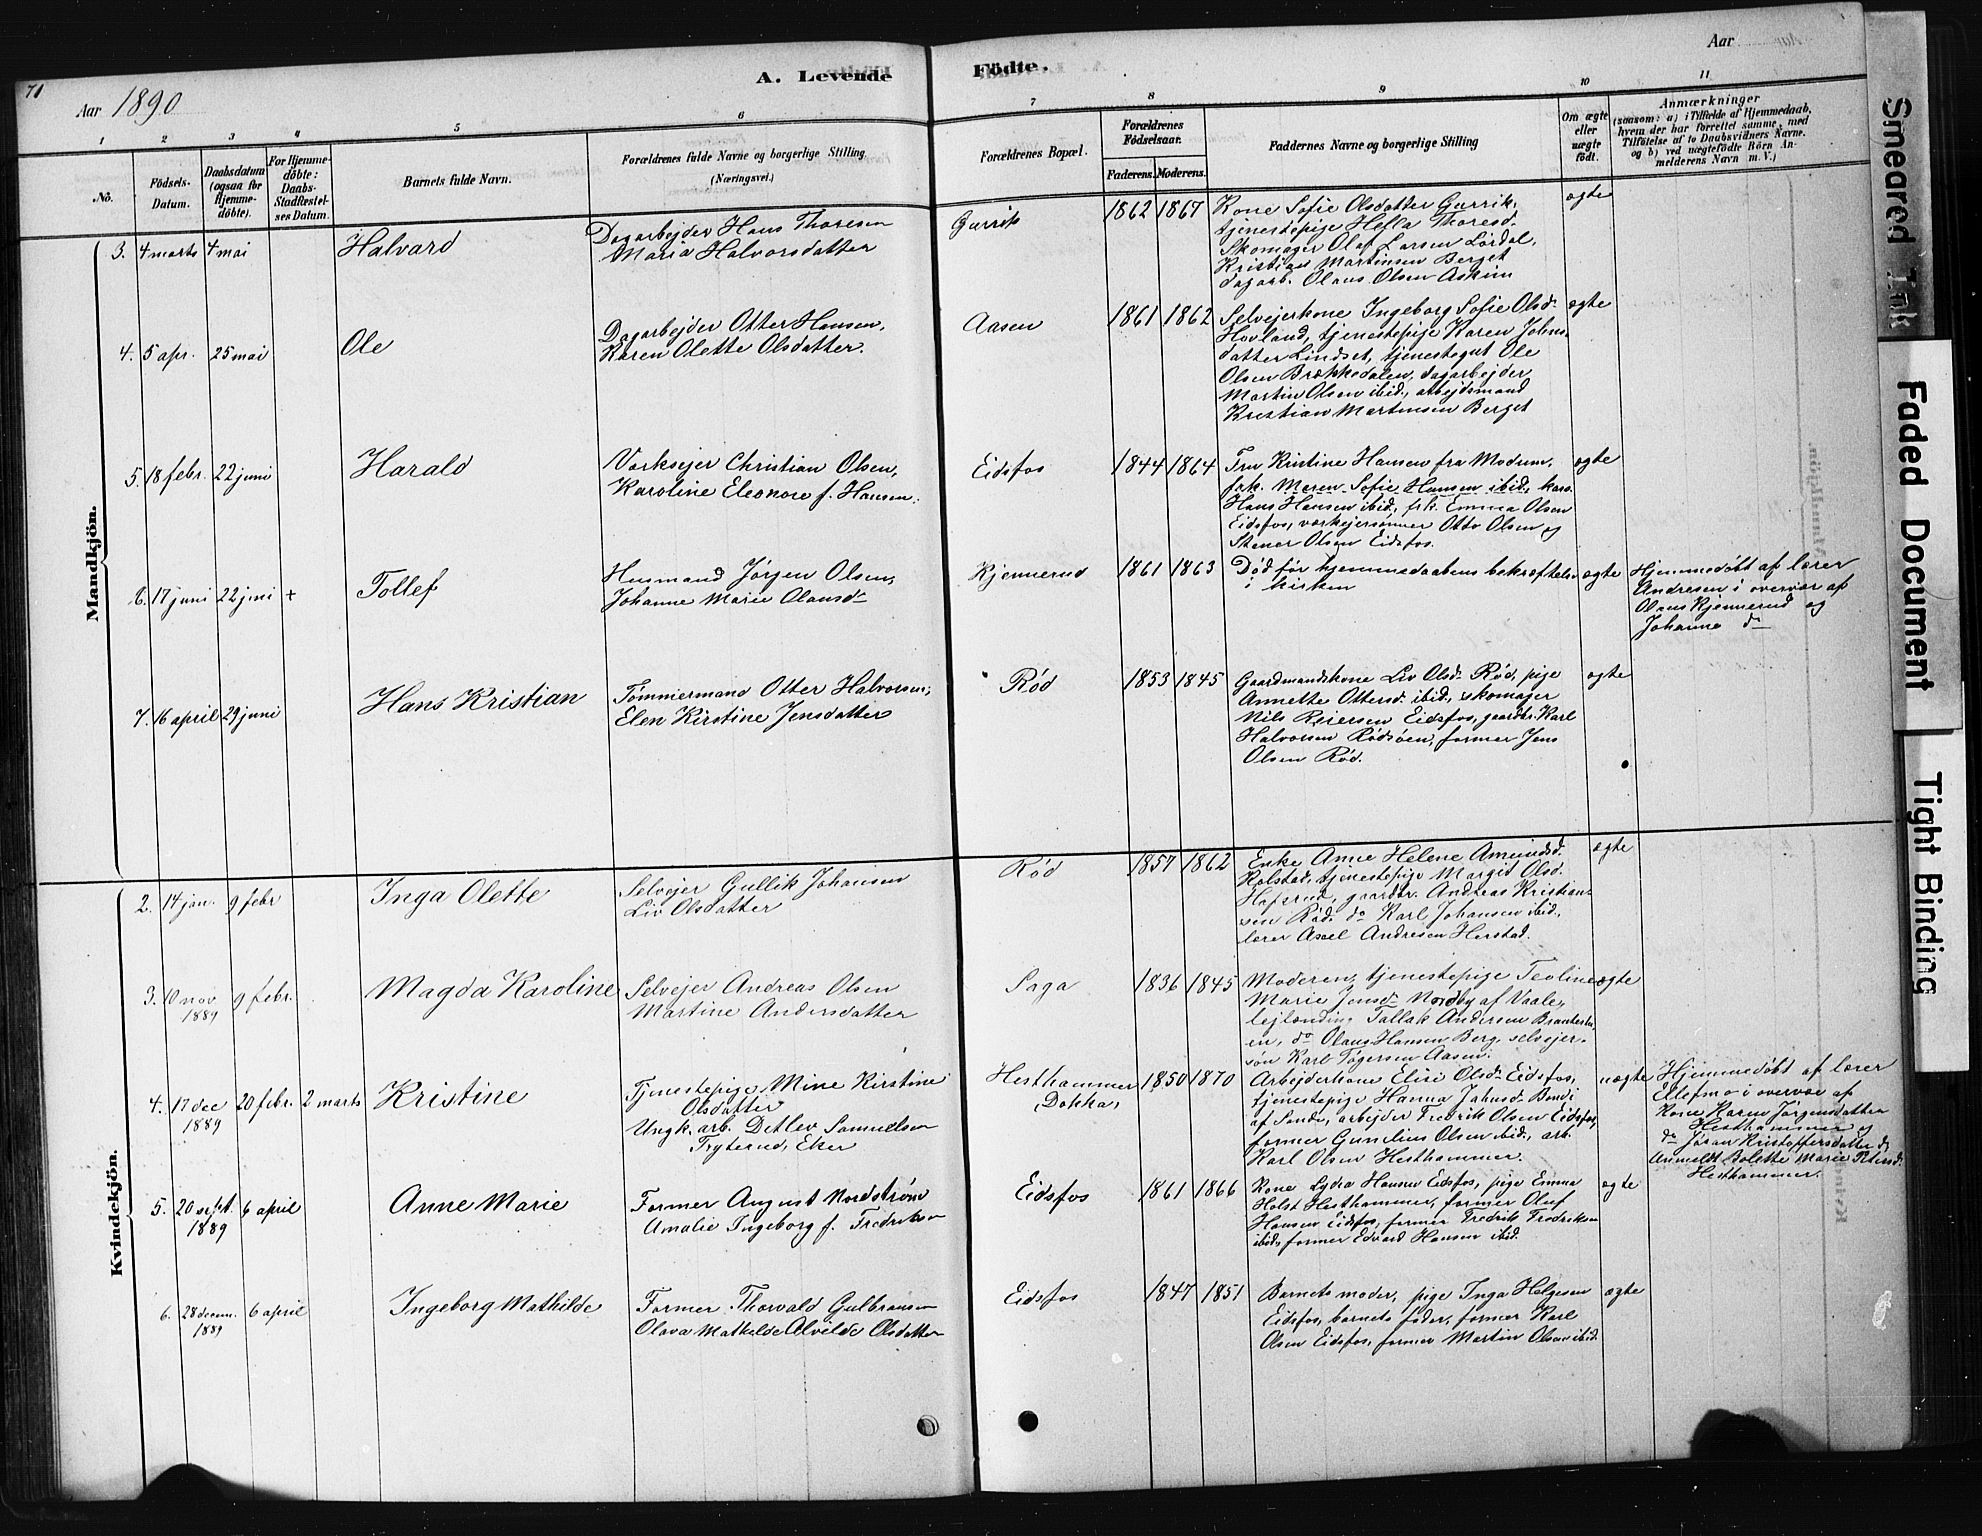 71
Aar 1890
A. Levende
Fødte.
Aar
1
2
3
4
5
6
7
8
9
10
11
No.
Födsels-
Datum.
Daabsdatum
(ogsaa for
Hjemme-
döbte).
For Hjemme-
döbte:
Daabs-
Stadfæstel-
ses Datum.
Barnets fulde Navn.
Forældrenes fulde Navne og borgerlige Stilling
(Næringsvei.)
Forældrenes Bopæl.
Forældrenes
Födselsaar.
Faderens.
Moderens.
Faddernes Navne og borgerlige Stilling
Om ægte
eller
uægte
født.
Anmærkninger
(saasom: a) i Tilfælde af Hjemmedaab,
hvem der har forrettet samme, med
Tilföielse af to Daabsvidners Navne.
og b) ved uægtefödte Börn An-
melderens Navn m. V.)
Mandkjön.
3. 4 marts 4 mai
Halvard
Dagarbejder Hans Thoresen
Maria Halvorsdatter
Gurrik
1862 1867
Kone Sofie Olsdatter Gurrik,
tjenestepige Hella Thoresd.
Skomager Olaf Larsen Lördal,
Kristian Martinsen Berget
dagarb. Olaus Olsen Askim
ægte
4. 5 apr. 25 mai
Ole
Dagarbejder Otter Hansen,
Karen Olette Olsdatter.
Aasen
1861 1862
Selvejerkone Ingeborg Sofie Olsd.
Hovland, tjenestepige Karen Johns-
datter Lindset, tjenestegut Ole
Olsen Brækkedalen, dagarbejder
Martin Olsen ibid., arbejdsmand
Kristian Martinsen Berget
ægte
5. 18 febr. 22 juni
Harald
Værksejer Christian Olsen,
Karoline Eleonore f. Hansen.
Eidsfos
1844 1864
Fru Kristine Hansen fra Modum,
frk. Maren Sofie Hansen ibid.,
Hans Hansen ibid., frk. Emma Olsen
Eidsfos, værkejersønner Otto Olsen og
Stener Olsen Eidsfos.
ægte
6. 17 juni 22 juni +
Tollef
Husmand Jørgen Olsen,
Johanne Marie Olausd.
Kjennerud
1861 1863
Död før hjemmedaabens bekræftelse
i kirken
ægte
Hjemmedöbt af lærer
Andresen i overvær af
Olaus Kjennerud og
Johanne do
7. 16 april 29 juni
Hans Kristian
Tømmermand Otter Halvorsen,
Elen Kirstine Jensdatter
Rød
1853 1845
Gaardmandskone Liv Olsd. Rød, pige
Annette Ottersd. ibid., skomager
Nils Reiersen Eidsfos, gaardbr. Karl
Halvorsen Rødsöen, former Jens
Olsen Rød.
ægte
Kvindekjön.
2. 14 jan. 9 febr
Inga Olette
Selvejer Gullik Johansen
Liv Olsdatter
Rød
1857 1862
Enke Anne Helene Amundsd.
Kolstad, tjenestepige Margit Olsd.
Hafsrud, gaardbr. Andreas Kristian-
sen Rød. do Karl Johansen ibid.,
lærer Axel Andresen Herstad.
ægte
3. 10 nov 9 febr.
1889
Magda Karoline
Selvejer Andreas Olsen
Martine Andersdatter
Saga
1836 1845
Moderen, tjenestepige Teoline
Marie Jensd. Nordby af Vaale,
lejlænding Tallak Andersen
en, do Olaus Hansen Berg, selvejer-
søn Karl Tøgersen Aasen.
ægte
4. 17 dec 20 febr. 2 marts
1889
Kristine
Tjenestepige Mine Kirstine
Olsdatter
Ungk. arb. Detlev Samuelsen
Tryterud, Eker
Hesthammer
Dokka,
1850 1870
Arbejderkone Elisi Olsd. Eidsfos,
tjenestepige Hanna Jahnsd. Bondi
af Sande, arbejder Fredrik Olsen Eidsfos,
former Gunelius Olsen ibid., arb.
Karl Olsen Hesthammer.
uægte
Hjemmedöbt af lærer
Ellefmo i overvær af
Kone Karen Jørgensdatter
Hesthammer og
do Josan Kristoffersdatter do
Anmeldt Bolette Marie Petersd.
Hesthammer.
5. 20 sept. 6 april
1889
Anne Marie
Former August Nordstrøm
Amalie Ingeborg f. Fredriksen
Eidsfos
1861 1866
Kone Lydia Hansen Eidsfos, pige Emma
Holst Hesthammer, former Oluf
Hansen Eidsfos, former Fredrik Fredriksen
ibid., former Edvard Hansen ibid.
ægte
6. 28 decem. 6 april
1889
Ingeborg Mathilde
Former Thorvald Gulbransen
Olava Mathilde Alvilde Olsdatter
Eidsfos
1847 1851
Barnets moder, pige Inga Helgesen
Eidsfos, barnets fader, former Karl
Olsen Eidsfos, former Martin Olsen ibid.
ægte
Smeared Ink
Faded Document
Tight Binding